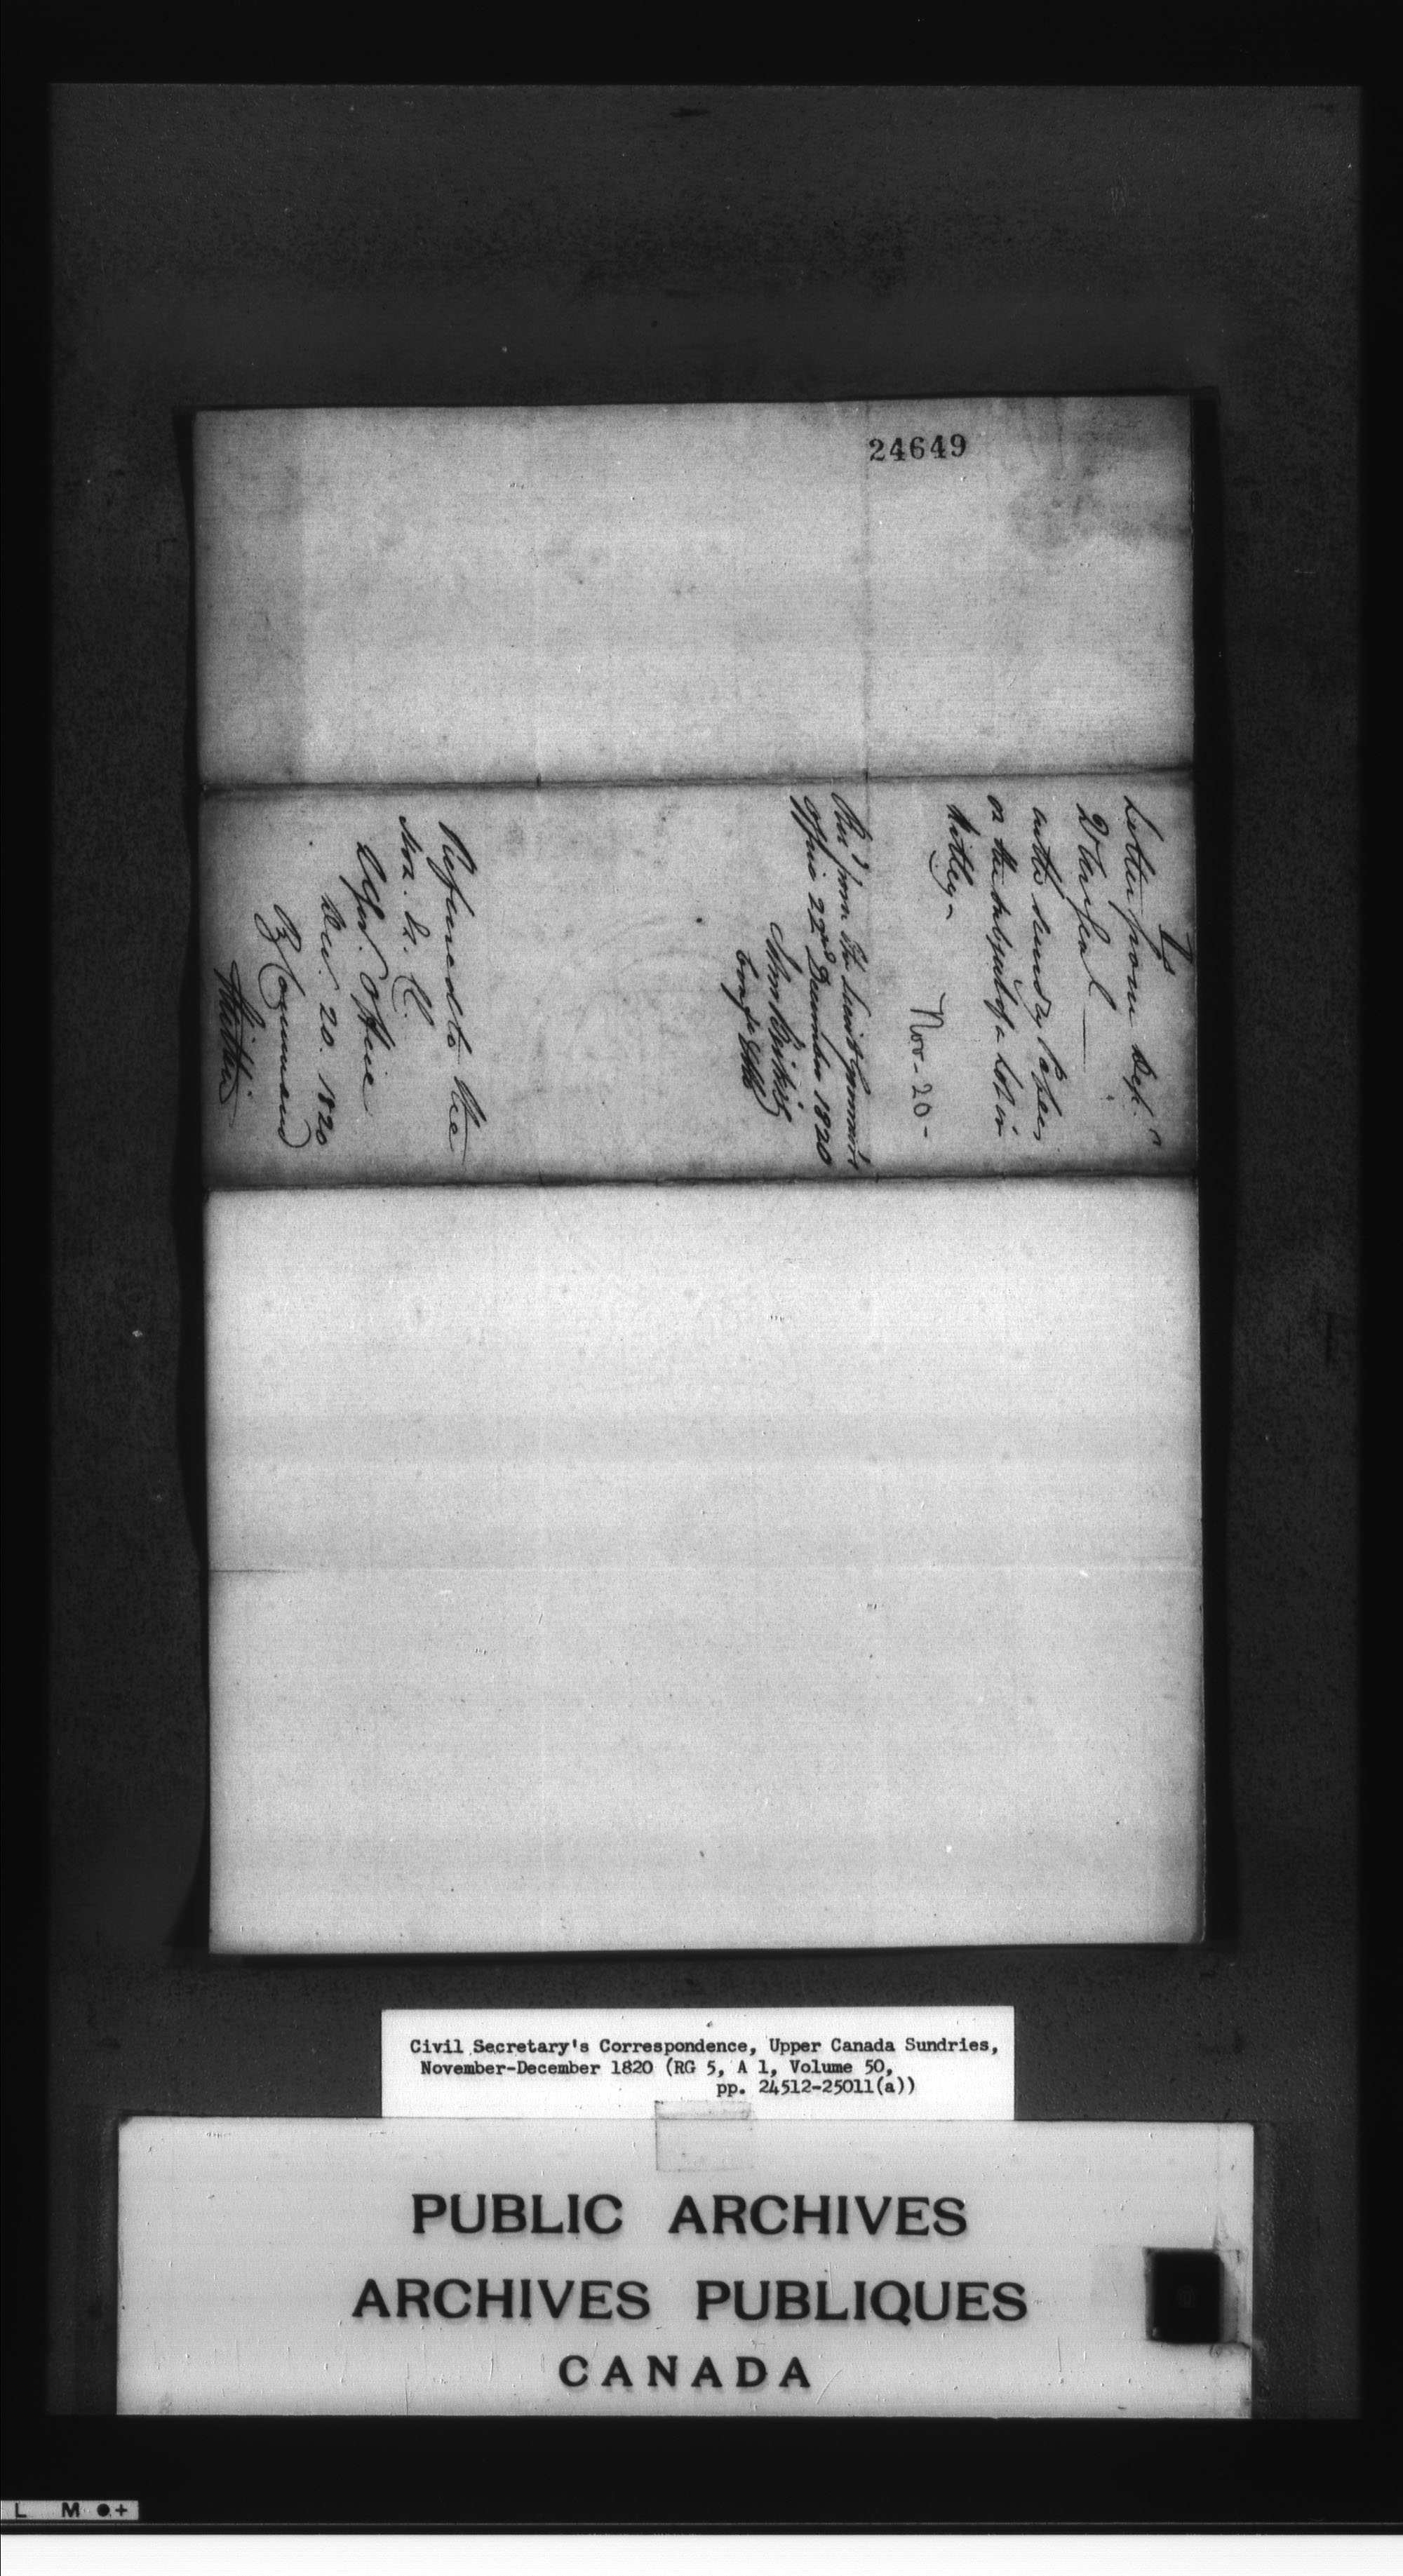 24649
Letter from Dep.
with sundry Papers
on the subject of a Lot in
Kitley -
Nov - 20 -
Rec'd from the Lieut Governor's
office 22nd December 1820
Referred to the
Hon. Ex. C.
Office
Dec. 20. 1820
By Command
Civil Secretary's Correspondence, Upper Canada Sundries,
November-December 1820 (RG 5, A 1, Volume 50,
pp. 24512-25011(a))
PUBLIC ARCHIVES
ARCHIVES PUBLIQUES
CANADA
L M